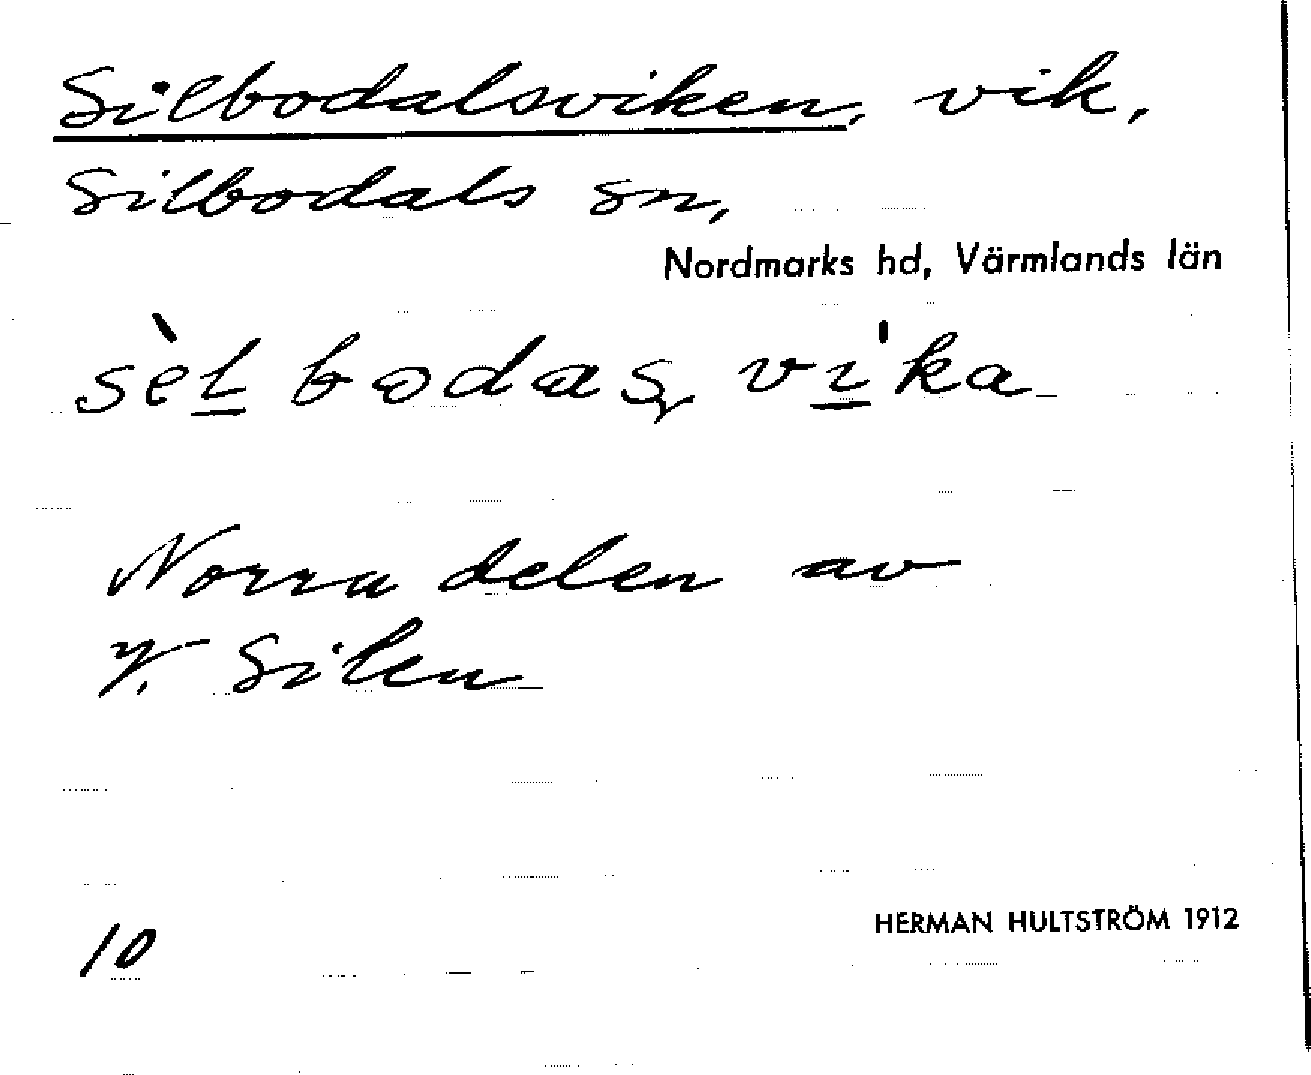 Silbodalsviken, vik,
Silbodals sn,
Nordmarks hd, Värmlands län
sèl bodas vi̍ka
Norra delen av
V. Silen
10
HERMAN HULTSTRÖM 1912